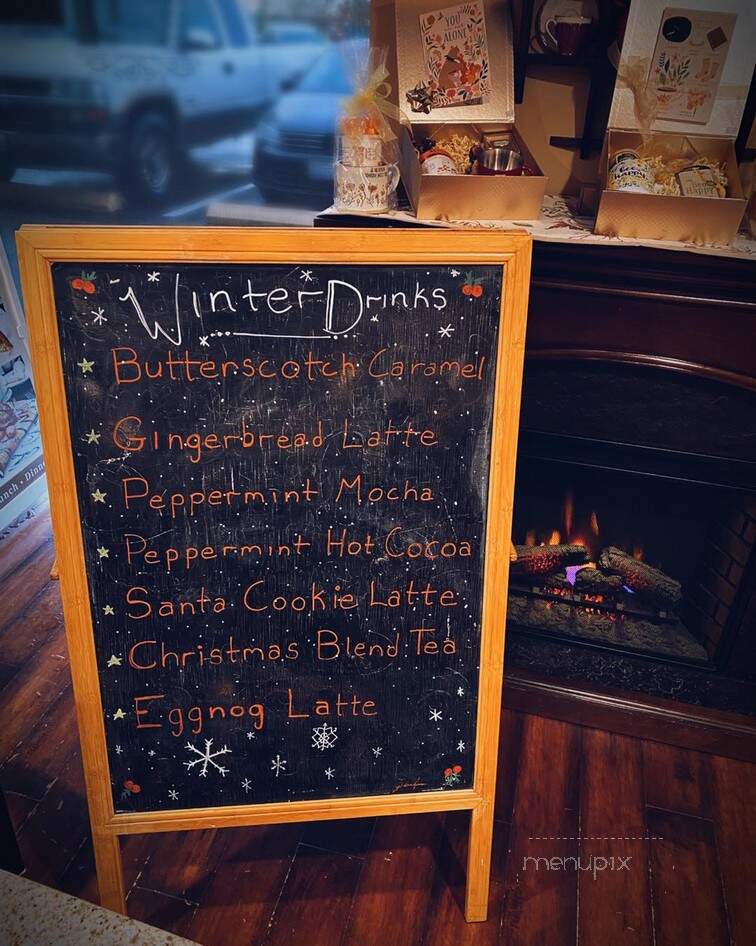 YOU
ALONE
Bee
Happy
BEE
HAPPY
Winter Drinks
Butterscotch Caramel
Gingerbread Latte
Peppermint Mocha
Peppermint Hot Cocoa
Santa Cookie Latte
Christmas Blend Tea
Eggnog Latte
menupix